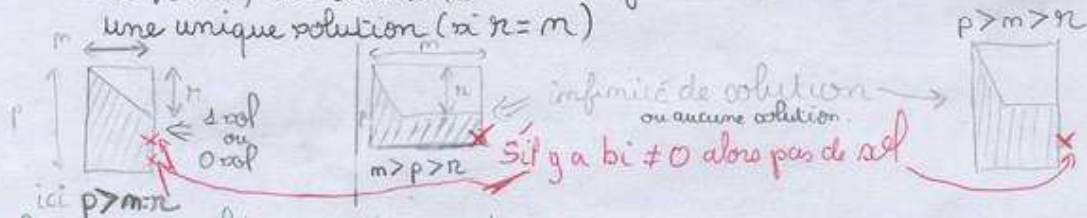 une unique solution (si r = m)
m
p
r
1 sol
ou
0 sol
ici p>m=r
m
r
m>p>r
infinité de solution
ou aucune solution.
S'il y a bi ≠ 0 alors pas de sol
p>m>r